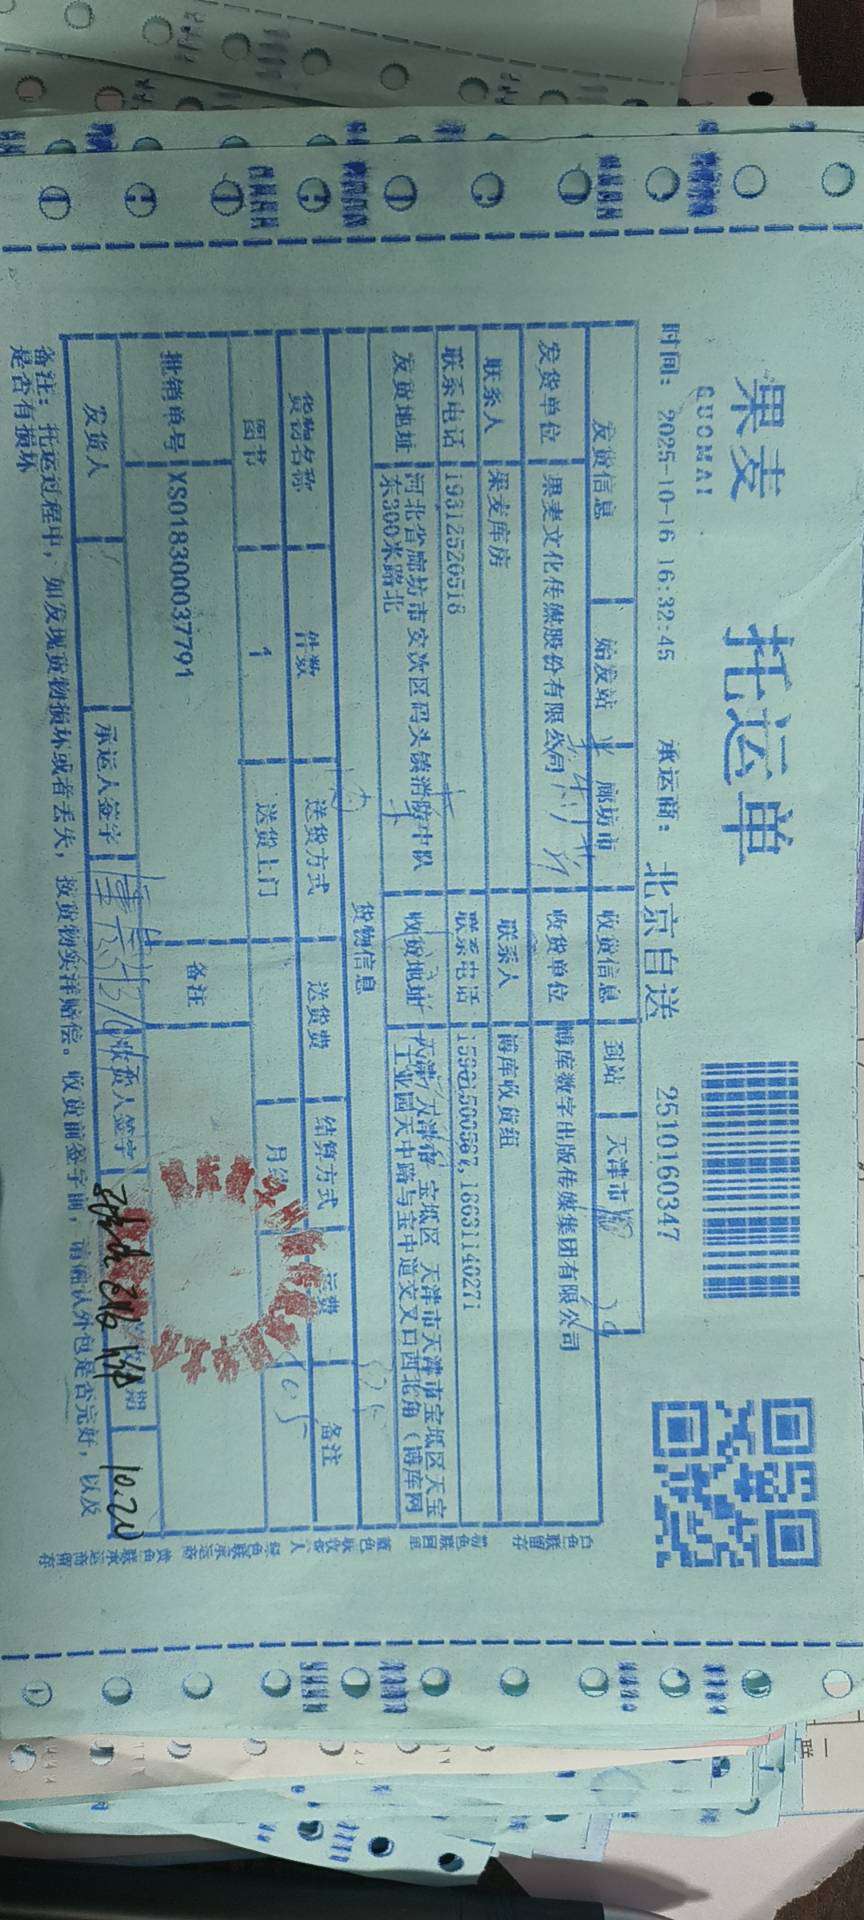 果麦 托运单
GUOMAI
时间： 2025-10-16 16:32:45 承运商： 北京自送 2510160347
发货信息 始发站 廊坊市 收货信息 到站 天津市
发货单位 果麦文化传媒股份有限公司 收货单位 博库数字出版传媒集团有限公司
联系人 果麦库房 联系人 博库收货组
联系电话 19312520518 联系电话 15901500567,18631140271
发货地址 河北省廊坊市安次区码头镇消防中队东300米路北 收货地址 天津 天津市 宝坻区 天津市天津市宝坻区天宝工业园天中路与宝中道交叉口西北角（博库网
货物信息
货物名称 件数 送货方式 送货费 结算方式 运费 备注
图书 1 送货上门 月结
批销单号 XS018300037791 备注
发货人 承运人签字 收货人签字 期 10.20
备注： 托运过程中，如发现货物损坏或者丢失，按货物实洋赔偿。收货前签字前，请确认外包是否完好，以及
是否有损坏